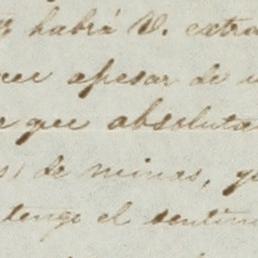 habrá V. extra
apesar de
que absoluta
de minas,
tengo el sentim